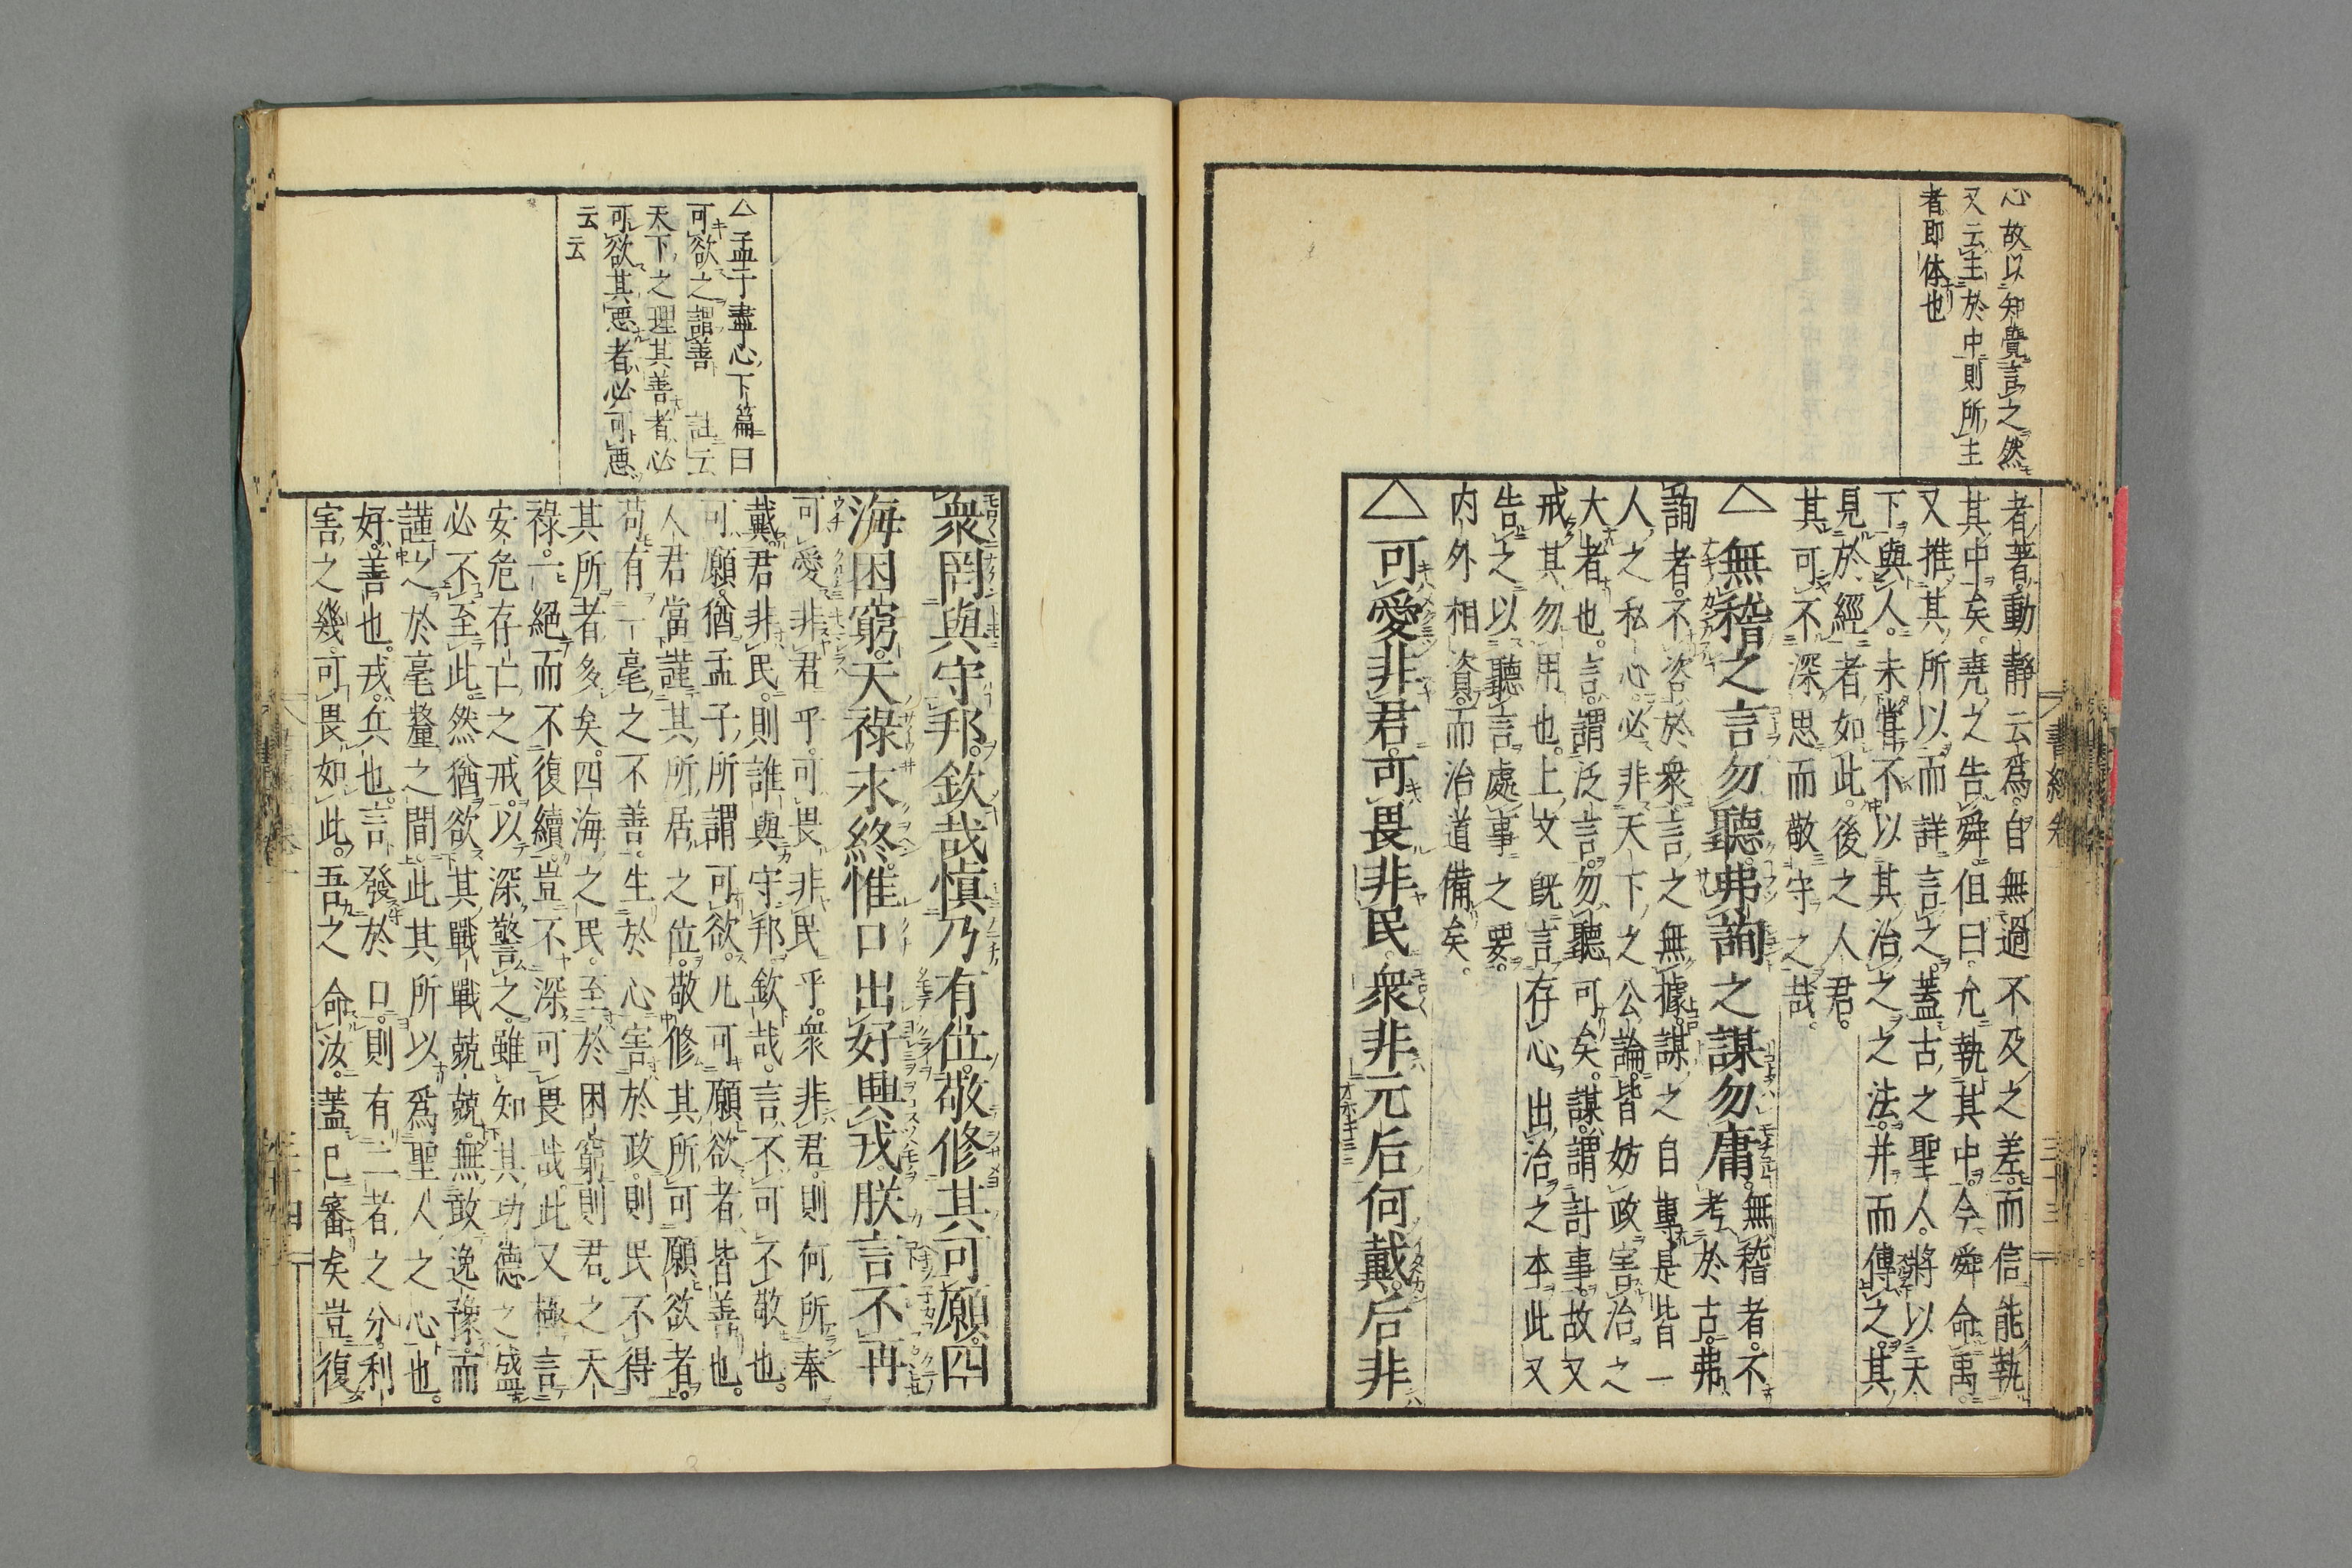 心故以知覺言之然
又云主於中則所主
者即体也
者著動靜云爲自無過不及之差而信能執
其中矣堯之告舜但曰允執其中今舜命禹
又推其所以而詳言之蓋古之聖人將以天
下與人未嘗不以其治之之法并而傳之其
見於經者如此後之人君
其可不深思而敬守之哉
△無稽之言勿聽弗詢之謀勿庸 無稽者不
考於古弗
詢者不咨於衆言之無據謀之自專是皆一
人之私心必非天下之公論皆妨政害治之
大者也言謂泛言勿聽可矣謀謂計事故又
戒其勿用也上文既言存心出治之本此又
告之以聽言處事之要
内外相資而治道備矣
△可愛非君可畏非民衆非元后何戴后非
書經卷
三十三
△孟子盡心下篇曰
可欲之謂善 註云
天下之理其善者必
可欲其悪者必可悪
云云
衆罔與守邦欽哉愼乃有位敬修其可願四
海困窮天祿永終惟口出好興戎朕言不再
可愛非君乎可畏非民乎衆非君則何所奉
戴君非民則誰與守邦欽哉言不可不敬也
可願猶孟子所謂可欲凡可願欲者皆善也
人君當謹其所居之位敬修其所可願欲者
苟有一毫之不善生於心害於政則民不得
其所者多矣四海之民至於困窮則君之天
祿一絕而不復續豈不深可畏哉此又極言
安危存亡之戒以深警之雖知其功德之盛
必不至此然猶欲其戰戰兢兢無敢逸豫而
謹之於毫釐之間此其所以爲聖人之心也
好善也戎兵也言發於口則有二者之分利
害之幾可畏如此吾之命汝蓋已審矣豈復